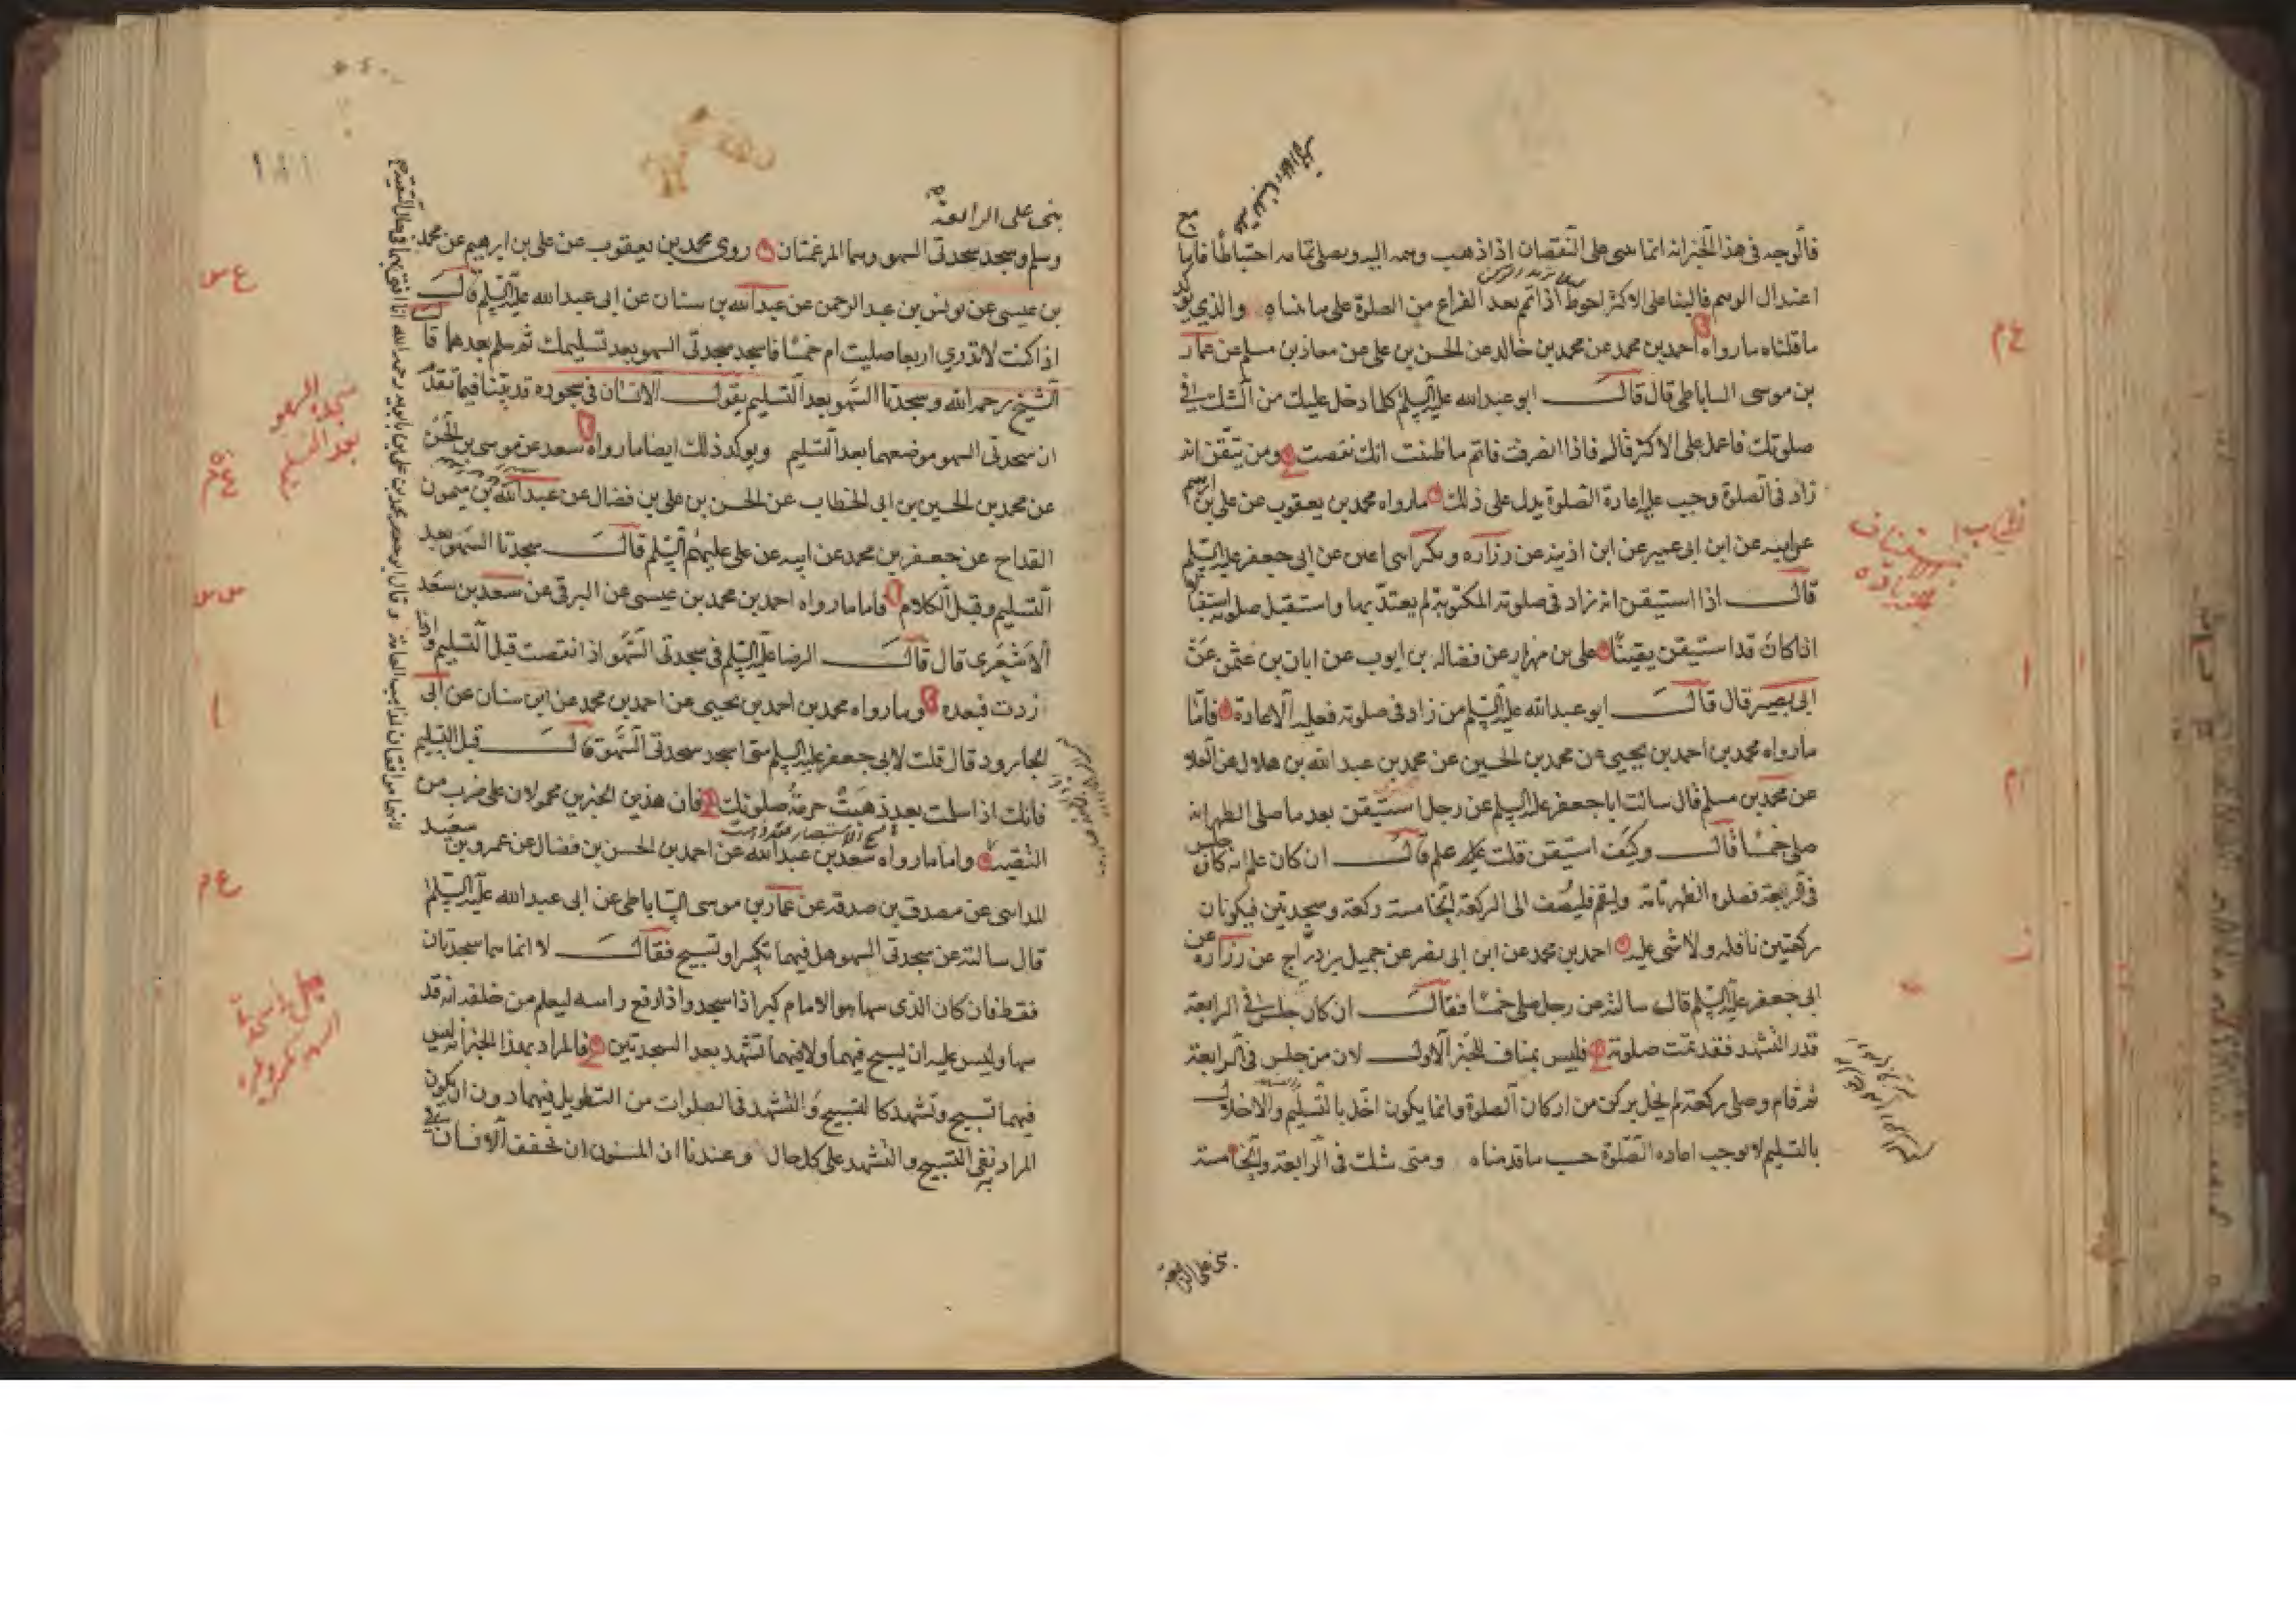 فالوجه فى هذا الخبر انه انما يبنى على النقصان اذا ذهب وهمه اليه ويصلى تمامه احتياطا فاما مع
اعتدال الوهم فالبناء على الاكثر احوط اذا تمم بعد الفراغ من الصلوة على ما بيناه والذى يؤكد
ما قلناه ما رواه احمد بن محمد عن محمد بن خالد عن الحسن بن على عن معاذ بن مسلم عن عمار
بن موسى الساباطى قال قال ابو عبدالله عليه السلم كلما دخل عليك من الشك فى
صلوتك فاعمل على الاكثر قال فاذا انصرفت فاتم ما ظننت انك نقصت ومن تيقن انه
زاد فى الصلوة وجب عليه اعادة الصلوة يدل على ذلك ما رواه محمد بن يعقوب عن على بن ابرهيم
عن ابيه عن ابن ابى عمير عن ابن اذينه عن زراره وبكير ابنى اعين عن ابى جعفر عليه السلم
قال اذا استيقن انه زاد فى صلوته المكتوبة لم يعتد بها واستقبل صلوته استقبالا
اذا كان قد استيقن يقينا على بن مهزيار عن فضاله بن ايوب عن ابان بن عثمن عن
ابى بصير قال قال ابو عبدالله عليه السلم من زاد فى صلوته فعليه الاعادة فاما
ما رواه محمد بن احمد بن يحيى عن محمد بن الحسين عن محمد بن عبد الله بن هلال عن العلا
عن محمد بن مسلم قال سالت ابا جعفر عليه السلم عن رجل استيقن بعد ما صلى الظهر انه
صلى خمسا قال وكيف استيقن قلت علم قال ان كان علم انه كان جلس
فى الرابعة فصلوه الظهر تامة وليقم فليضف الى الركعة الخامسة ركعة وسجدتين فيكونان
ركعتين نافله ولا شى عليه احمد بن محمد عن ابن ابى نصر عن جميل بن دراج عن زراره عن
ابى جعفر عليه السلم قال سالته عن رجل صلى خمسا فقال ان كان جلس فى الرابعة
قدر التشهد فقد تمت صلوته فليس بمناف للخبر الاول لان من جلس فى الرابعة
ثم قام وصلى ركعة لم يخل بركن من اركان الصلوة وانما يكون اخل بالتسليم والاخلال
بالتسليم لا يوجب اعاده الصلوة حسب ما قدمناه ومتى شك فى الرابعة والخامسة
بنى على الرابعة
بنى على الرابعة
وسلم وسجد سجدتى السهو وهما المرغمتان روى محمد بن يعقوب عن على بن ابرهيم عن محمد
بن عيسى عن يونس بن عبد الرحمن عن عبدالله بن سنان عن ابى عبدالله عليه السلم قال
اذا كنت لا تدرى اربعا صليت ام خمسا فاسجد سجدتى السهو بعد تسليمك ثم سلم بعدهما قال
الشيخ رحمه الله وسجدتا السهو بعد التسليم يقول الانسان فى سجوده قد بينا فيما تقدم
ان سجدتى السهو موضعهما بعد التسليم ويوكد ذلك ايضا ما رواه سعد عن موسى بن الحسن
عن محمد بن الحسين بن ابى الخطاب عن الحسن بن على بن فضال عن عبد الله بن ميمون
القداح عن جعفر بن محمد عن ابيه عن على عليهم السلم قال سجدتا السهو بعد
التسليم وقبل الكلام فاما ما رواه احمد بن محمد بن عيسى عن البرقى عن سعد بن سعد
الاشعرى قال قال الرضا عليه السلم فى سجدتى السهو اذا نقصت قبل التسليم واذا
زدت فبعده وما رواه محمد بن احمد بن يحيى عن احمد بن محمد عن ابن سنان عن ابى
الجارود قال قلت لابى جعفر عليه السلم متى اسجد سجدتى السهو قال قبل التسليم
فانك اذا سلمت بعد ذهبت حرمة صلوتك فان هذين الخبرين محمولان على ضرب من
التقية واما ما رواه سعد بن عبد الله عن احمد بن الحسن بن فضال عن عمرو بن سعيد
المداينى عن مصدق بن صدقه عن عمار بن موسى الساباطى عن ابى عبد الله عليه السلم
قال سالته عن سجدتى السهو هل فيهما تكبير او تسبيح فقال لا انما هما سجدتان
فقط فان كان الذى سها هو الامام كبر اذا سجد واذا رفع راسه ليعلم من خلفه انه قد
سها وليس عليه ان يسبح فيهما ولا فيهما تشهد بعد السجدتين فالمراد بهذا الخبر انه ليس
فيهما تسبيح وتشهد كالتسبيح والتشهد فى الصلوات من التطويل فيهما دون ان يكون
المراد نفى التسبيح والتشهد على كل حال وعندنا ان المسنون ان تخفف الانسان فى
سجده السهو
بعد التسليم